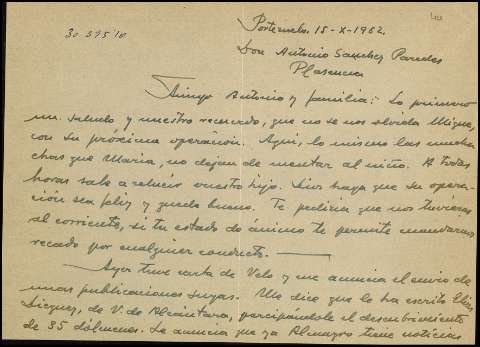 Porternelo. 15-X-1952.
Don Antonio Sanchez Paredes
Plasencia
Amigo Antonio y familia: Lo primero
un saludo, y nuestro recuerdo, que no se nos olvida Migue,
con su próxima operación. Aquí, lo mismo las mucha
chas que Maria, no dejan de mentar al niño. A todas
horas sale a relucir vuestro hijo. Dios haga que su opera-
ción sea feliz y quede bueno. Te pediria que nos tuvieras
al corriente, si tu estado de ánimo te permite mandarnos
recado por cualquier conducto.
Ayer tuve carta de Velo y me anuncia el envio de
unas publicaciones suyas. Me dice que le ha escrito Elias
Dieguez, de V. de Alcántara, participándole el descubrimiento
de 35 dólmenes. Le anuncia que ya Almagro tiene noticias